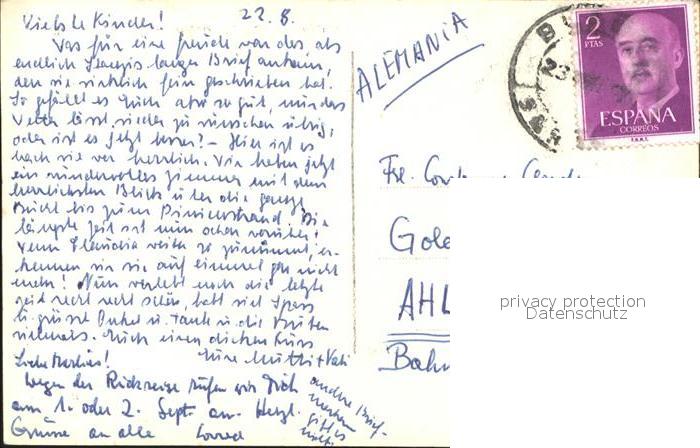 22. 8.
Liebste Kinder!
Was für eine Freude war das, als
endlich langer Brief ankam,
den sie wirklich fein geschrieben hat.
So gefällt es Euch also so gut, nur das
Wetter lässt wieder zu wünschen übrig,
oder ist es jetzt besser? - Hier ist es
nach wie vor herrlich. Wir haben jetzt
ein wundervolles Zimmer mit dem
herrlichsten Blick über die ganze
Bucht bis zum Pinienstrand. Die
längste Zeit ist nun schon vorüber!
Wenn Claudia weiter so zunimmt, er-
kennen wir sie auf einmal gar nicht
mehr! Nun verlebt noch die letzte
Zeit recht recht schön, habt viel Spass
u. grüsst Onkel u. Tante u. die
vielmals. Euch einen dicken Kuss
Eure Mutti + Vati
Liebe
Wegen der Rückreise rufen wir Dich
am 1. oder 2. Sept. an. Herzl.
Grüsse an alle
ALEMANIA
2
PTAS
ESPAÑA
CORREOS
F.N.M.T.
23
Gol
AHL
Bahn
privacy protection
Datenschutz